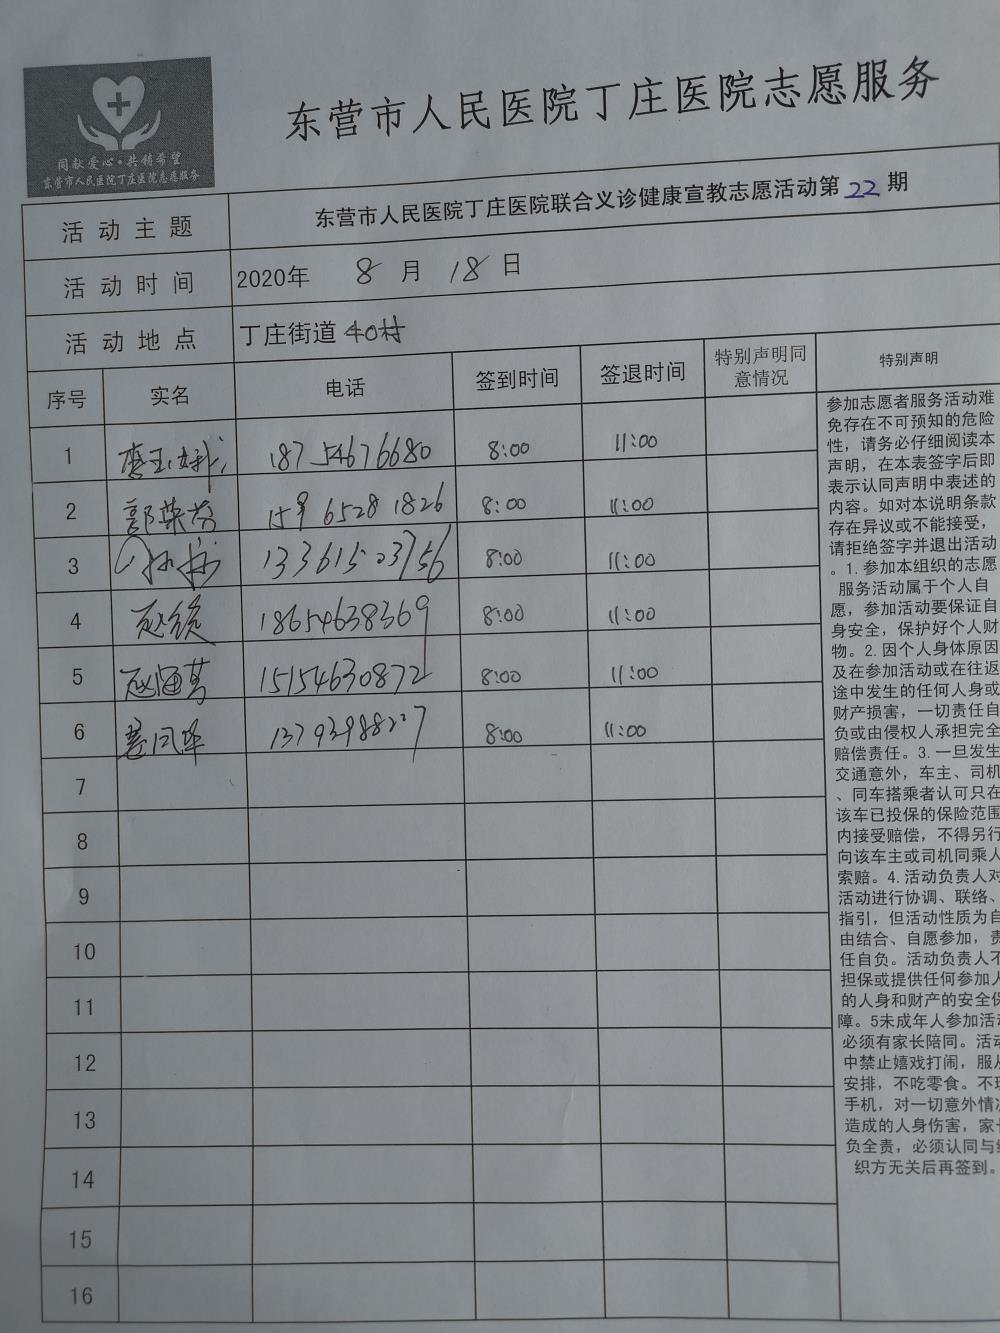 同献爱心·共铸希望
东营市人民医院丁庄医院志愿服务
东营市人民医院丁庄医院志愿服务
活动主题 东营市人民医院丁庄医院联合义诊健康宣教志愿活动第22期
活动时间 2020年 8月 18日
活动地点 丁庄街道 40村
序号 实名 电话 签到时间 签退时间 特别声明同意情况 特别声明
1 18754676680 8:00 11:00
2 郭荣芳 159 6528 1826 8:00 11:00
3 8:00 11:00
4 18654638369 8:00 11:00
5 15154630872 8:00 11:00
6 8:00 11:00
7
8
9
10
11
12
13
14
15
16
参加志愿者服务活动难
免存在不可预知的危险
性，请务必仔细阅读本
声明，在本表签字后即
表示认同声明中表述的
内容。如对本说明条款
存在异议或不能接受，
请拒绝签字并退出活动
。1.参加本组织的志愿
服务活动属于个人自
愿，参加活动要保证自
身安全，保护好个人财
物。2.因个人身体原因
及在参加活动或在往返
途中发生的任何人身或
财产损害，一切责任自
负或由侵权人承担完全
赔偿责任。3.一旦发生
交通意外，车主、司机
、同车搭乘者认可只在
该车已投保的保险范围
内接受赔偿，不得另行
向该车主或司机同乘人
索赔。4.活动负责人对
活动进行协调、联络、
指引，但活动性质为自
由结合、自愿参加，责
任自负。活动负责人不
担保或提供任何参加人
的人身和财产的安全保
障。5未成年人参加活动
必须有家长陪同。活动
中禁止嬉戏打闹，服从
安排，不吃零食。不玩
手机，对一切意外情况
造成的人身伤害，家长
负全责，必须认同与组
织方无关后再签到。